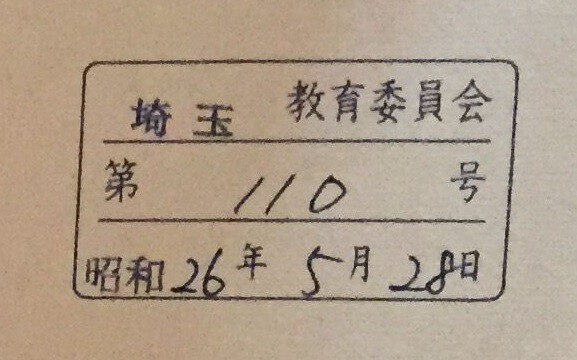 埼玉 教育委員会
第 110 号
昭和26年 5月 28日